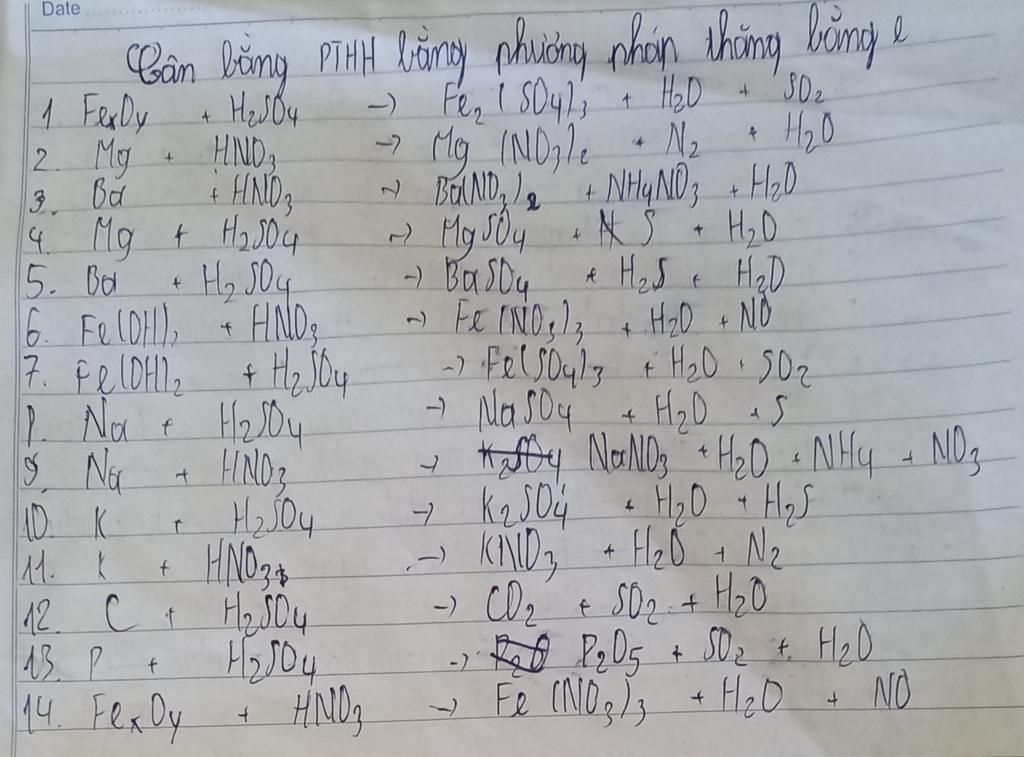 Date
Cân bằng PTHH bằng phương pháp thăng bằng e
1 FexOy + H2SO4 → Fe2(SO4)3 + H2O + SO2
2. Mg + HNO3 → Mg(NO3)2 + N2 + H2O
3. Ba + HNO3 → Ba(NO3)2 + NH4NO3 + H2O
4. Mg + H2SO4 → MgSO4 + S + H2O
5. Ba + H2SO4 → BaSO4 + H2S + H2O
6. Fe(OH)2 + HNO3 → Fe(NO3)3 + H2O + NO
7. Fe(OH)2 + H2SO4 → Fe(SO4)3 + H2O + SO2
8. Na + H2SO4 → NaSO4 + H2O + S
9. Na + HNO3 → NaNO3 + H2O + NH4 + NO3
10. K + H2SO4 → K2SO4 + H2O + H2S
11. K + HNO3 → KNO3 + H2O + N2
12. C + H2SO4 → CO2 + SO2 + H2O
13. P + H2SO4 → P2O5 + SO2 + H2O
14. FexOy + HNO3 → Fe(NO3)3 + H2O + NO